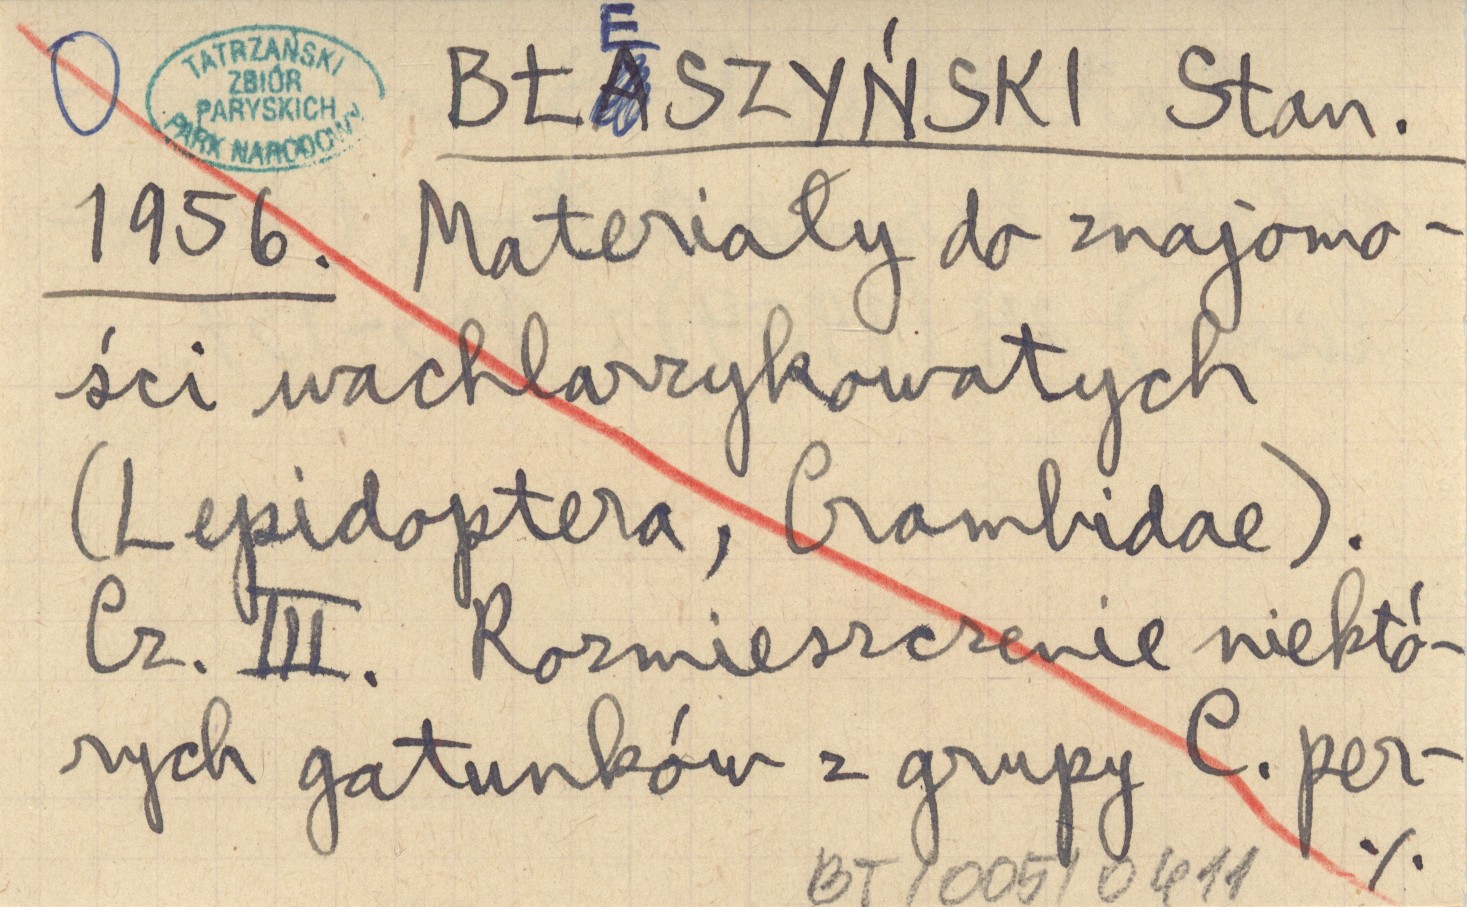 TATRZAŃSKI
ZBIÓR
PARYSKICH
PARK NARODOWY
E
BŁASZYŃSKI Stan.
1956. Materiały do znajomo-
ści wachlarzykowatych
(Lepidoptera, Crambidae).
Cz. III. Rozmieszczenie niektó-
rych gatunków z grupy C. per-
./.
BT/005/0411